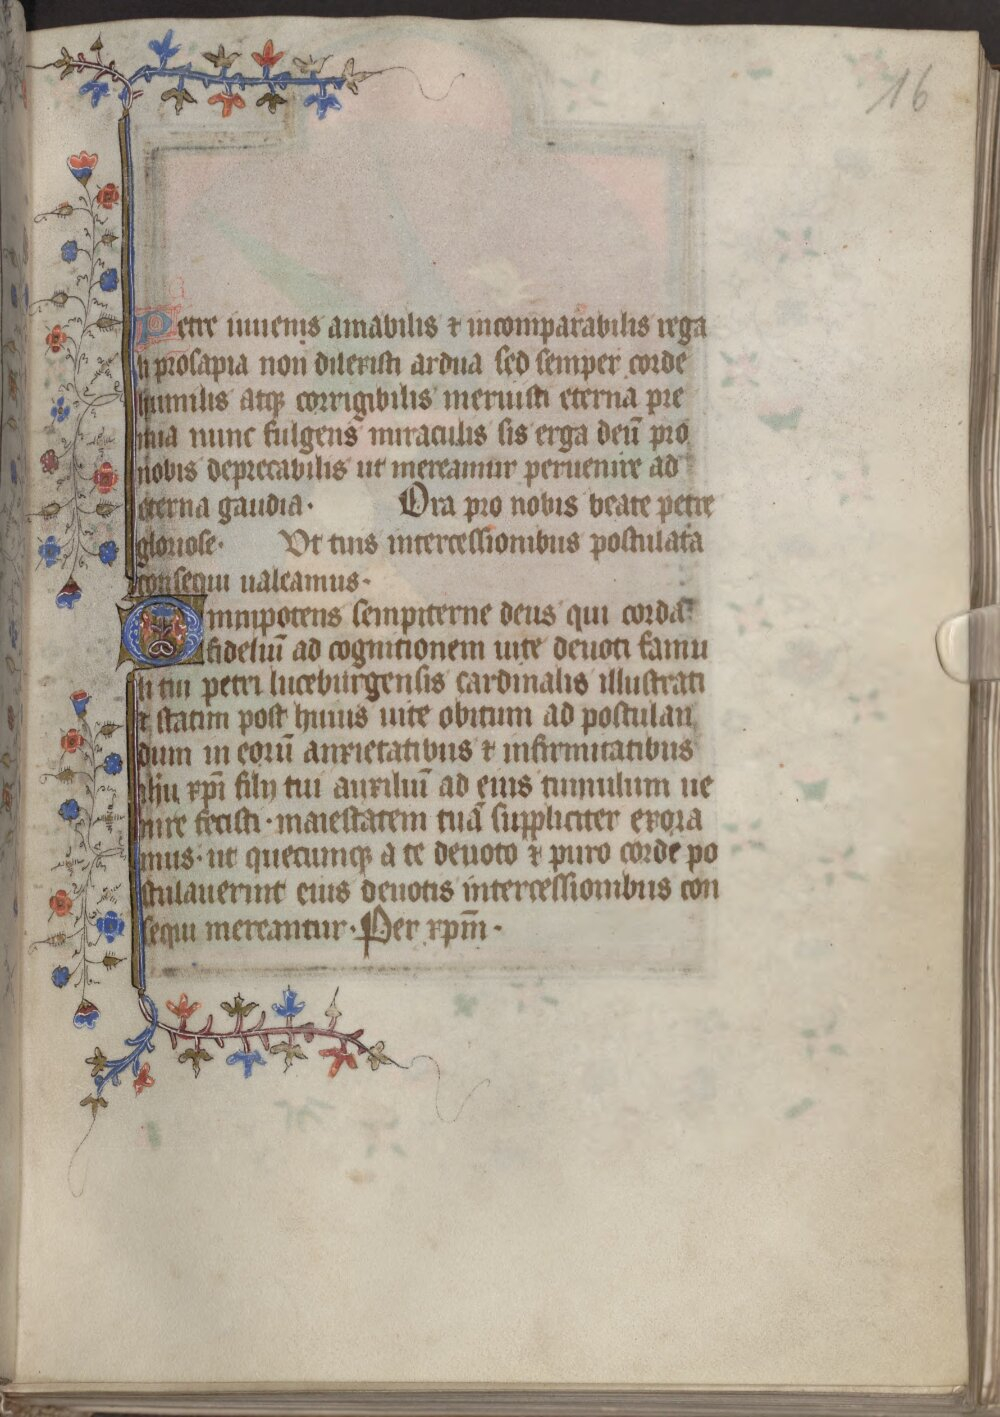 16
Petre iuuenis amabilis ⁊ incomparabilis rega
li prosapia non dilexisti ardua sed semper corde
humilis atqꝫ corrigibilis meruisti eterna pre
mia nunc fulgens miraculis sis erga deū pro
nobis deprecabilis ut mereamur peruenire ad
eterna gaudia· Ora pro nobis beate petre
gloriose· Vt tuis intercessionibus postulata
consequi ualeamus·
Omnipotens sempiterne deus qui corda
fideliū ad cognitionem uite deuoti famu
li tui petri luceburgensis cardinalis illustrati
⁊ statim post huius uite obitum ad postulan
dum in eorū anxietatibus ⁊ infirmitatibus
ihū xp̄i filij tui auxiliū ad eius tumulum ue
nire fecisti· maiestatem tuā suppliciter exora
mus· ut quecumqꝫ a te deuoto ⁊ puro corde po
stulauerint eius deuotis intercessionibus con
sequi mereantur· Per xp̄m̄·